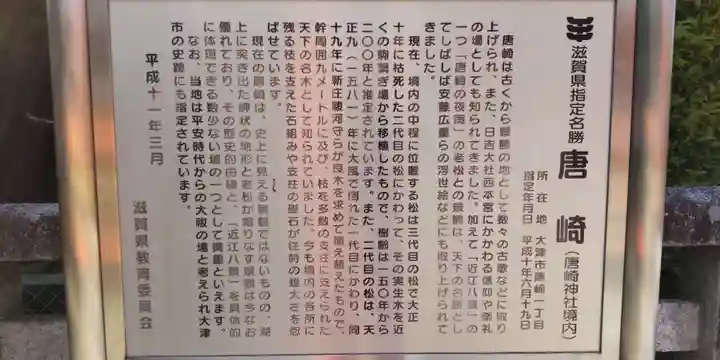 滋賀県指定名勝
唐崎(唐崎神社境内)
所在地 大津市唐崎一丁目
指定年月日 平成十年六月十九日
唐崎は古くから景勝の地として数々の古歌などに取り
上げられ、また、日吉大社西本宮にかかわる信仰や祭礼
の場としても知られてきました。加えて「近江八景」の
一つ「唐崎の夜雨」の老松との景観は、天下の名勝とし
てしばしば安藤広重らの浮世絵などにも取り上げられて
きました。
現在、境内の中程に位置する松は三代目の松で大正
十年に枯死した二代目の松にかわって、その実生木を近
くの駒繋ぎ場から移植したもので、樹齢は一五〇年から
二〇〇年と推定されています。また、二代目の松は、天
正九(一五八一)年に大風で倒れた一代目にかわり、同
十九年に新庄駿河守らが良木を求めて植え替えたもので、
幹周囲九メートルに及び、枝を多数の支柱に支えられた
天下の名木として知られていました。今も境内の各所に
残る枝を支えた石組みや支柱の礎石が往時の雄大さを偲
ばせています。
現在の唐崎は、史上に見える景観ではないものの、湖
上に突き出た岬状の地形と老松が織りなす景観は今なお
優れており、その歴史的由緒と、「近江八景」を具体的
に体現できる数少ない場の一つとして貴重といえます。
なお、当地は平安時代からの大祓の場と考えられ大津
市の史跡にも指定されています。
平成十一年三月
滋賀県教育委員会